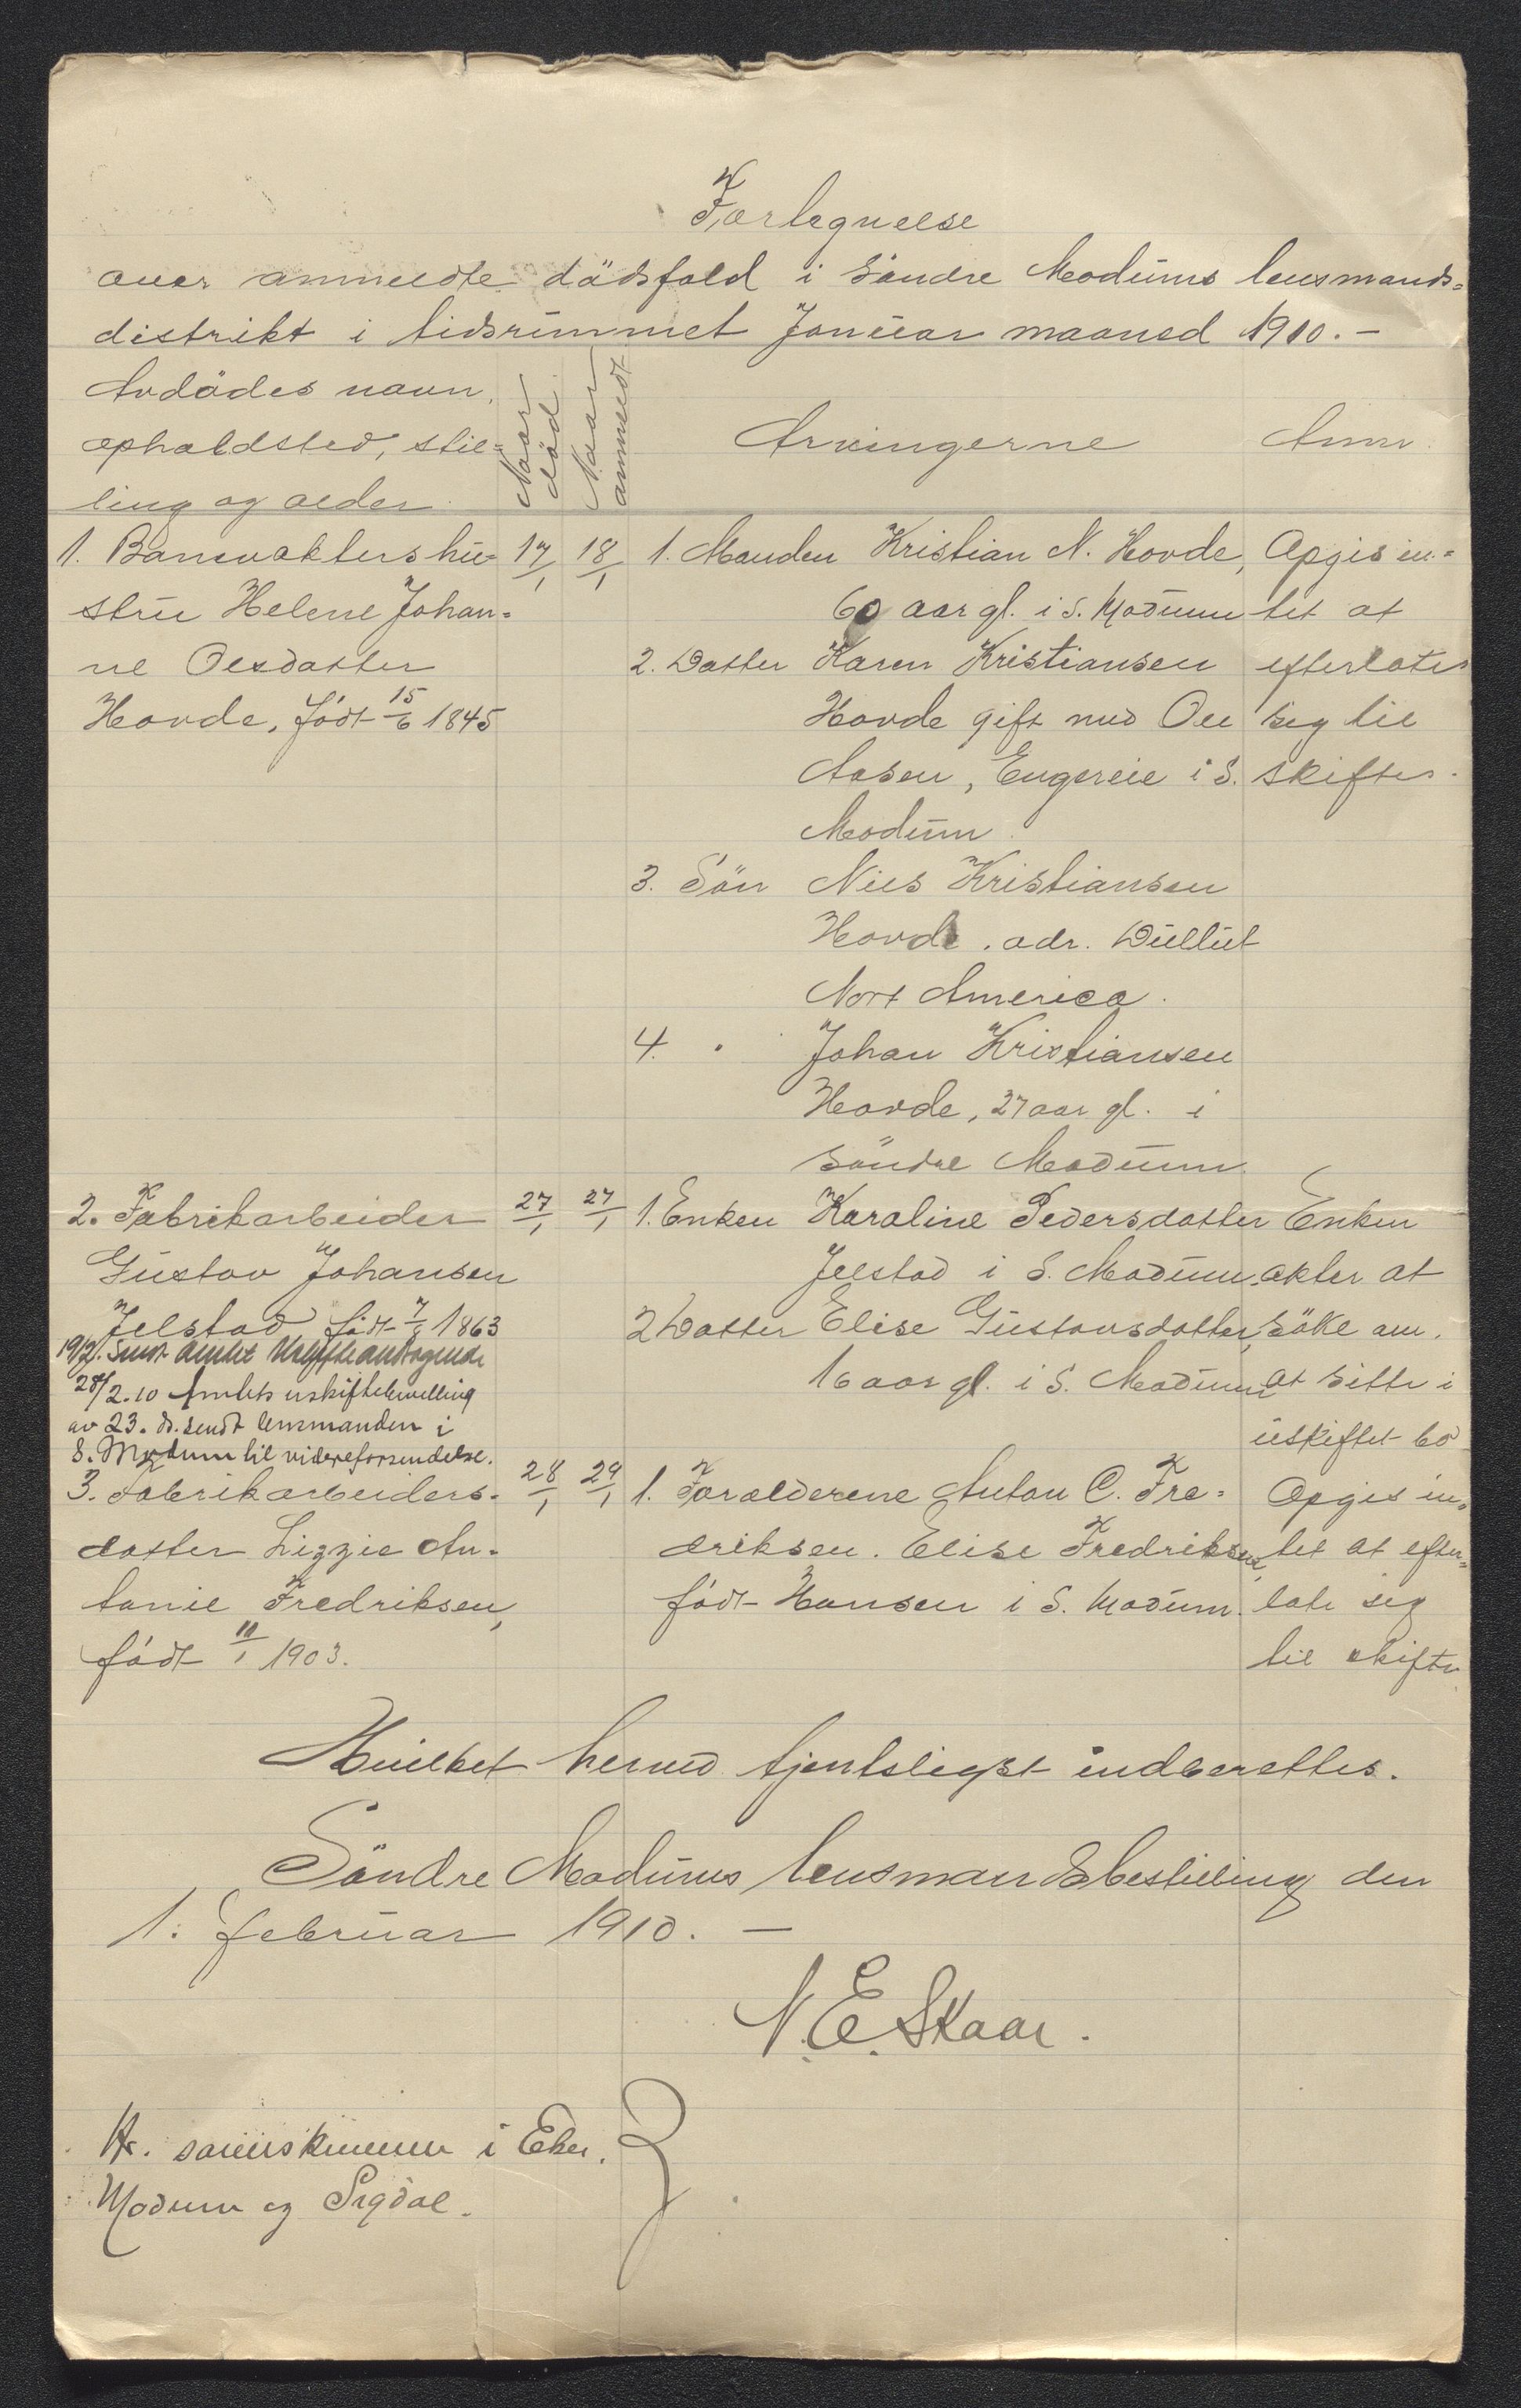 Fortegnelse
over anmeldte dödsfald i Söndre Modums lensmands=
distrikt i tidsrummet Januar maaned 1910. –
Avdödes navn,
opholdsted, stil=
ling og alder
Naar död
Naar anmeldt
Arvingerne
Anm.
1. Banevokters hu=
stru Helene Johan=
ne Olsdatter
Hovde, född 15/6 1845
17/1
18/1
1. Manden Kristian N. Hovde,
60 aar gl. i S. Modum
2. Datter Karen Kristiansen
Hovde gift med Ole
Aasen, Engereie i S.
Modum.
3. Sön Nils Kristiansen
Hovde. adr. Dullut
Nort America.
4. " Johan Kristiansen
Hovde, 27 aar gl. i
Söndre Modum.
Opgis in=
tet at
efterlates
sig til
skifte.
2. Fabrikarbeider
Gustav Johansen
Jelstad född 7/8 1863
19/2. sendt Amtet
28/2.10 Amtets uskiftebevilling
av 23. ds. sendt lensmanden i
S. Modum til videreforsendelse.
27/1
27/1
1. Enken Karoline Pedersdatter
Jelstad i S. Modum.
2 Datter Elise Gustavsdatter,
16 aar gl. i S. Modum
Enken
akter at
söke om
at sitte i
uskiftet bo
3. Fabrikarbeiders=
datter Lizzie An=
tonie Fredriksen,
född 11/1 1903.
28/1
29/1
1. Foralderene Anton C. Fre=
driksen. Elise Fredriksen,
född Hansen i S. Modum.
Opgis in=
tet at efter=
late sig
til skifte
Hvilket herved tjenstligst indberettes.
Söndre Modums lensmandsbestilling den
1. februar 1910. –
N. E. Skaar.
Hr. sorenskriveren i Eker,
Modum og Sigdal.